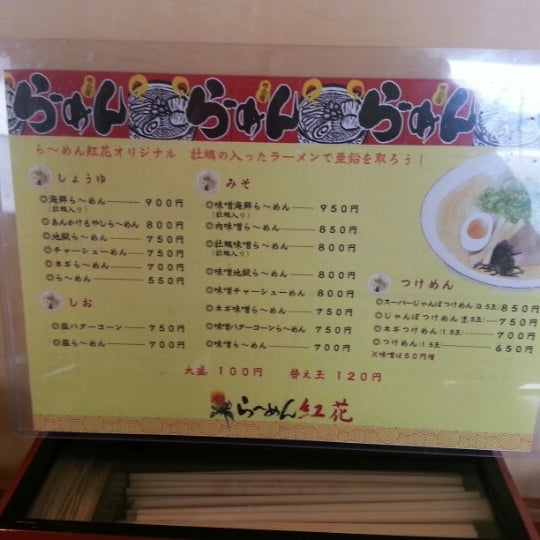 らーめん らーめん らーめん
ら〜めん紅花オリジナル 牡蠣の入ったラーメンで亜鉛を取ろう!
しょうゆ
◎海鮮ら〜めん 900円
(牡蠣入り)
◎あんかけもやしら〜めん 800円
◎地獄ら〜めん 750円
◎チャーシューめん 750円
◎ネギら〜めん 700円
◎ら〜めん 550円
しお
◎塩バターコーン 750円
◎塩ら〜めん 700円
みそ
◎味噌海鮮ら〜めん 950円
(牡蠣入り)
◎肉味噌ら〜めん 850円
◎牡蠣味噌ら〜めん 800円
(牡蠣入り)
◎味噌地獄ら〜めん 800円
◎味噌チャーシューめん 800円
◎ネギ味噌ら〜めん 750円
◎味噌バターコーンら〜めん 750円
◎味噌ら〜めん 700円
つけめん
◎スーパーじゃんぼつけめん(3.5玉) 850円
◎じゃんぼつけめん(2.5玉) 750円
◎ネギつけめん(1.5玉) 700円
◎つけめん(1.5玉) 650円
※味噌は50円増
大盛 100円 替え玉 120円
ら〜めん紅花